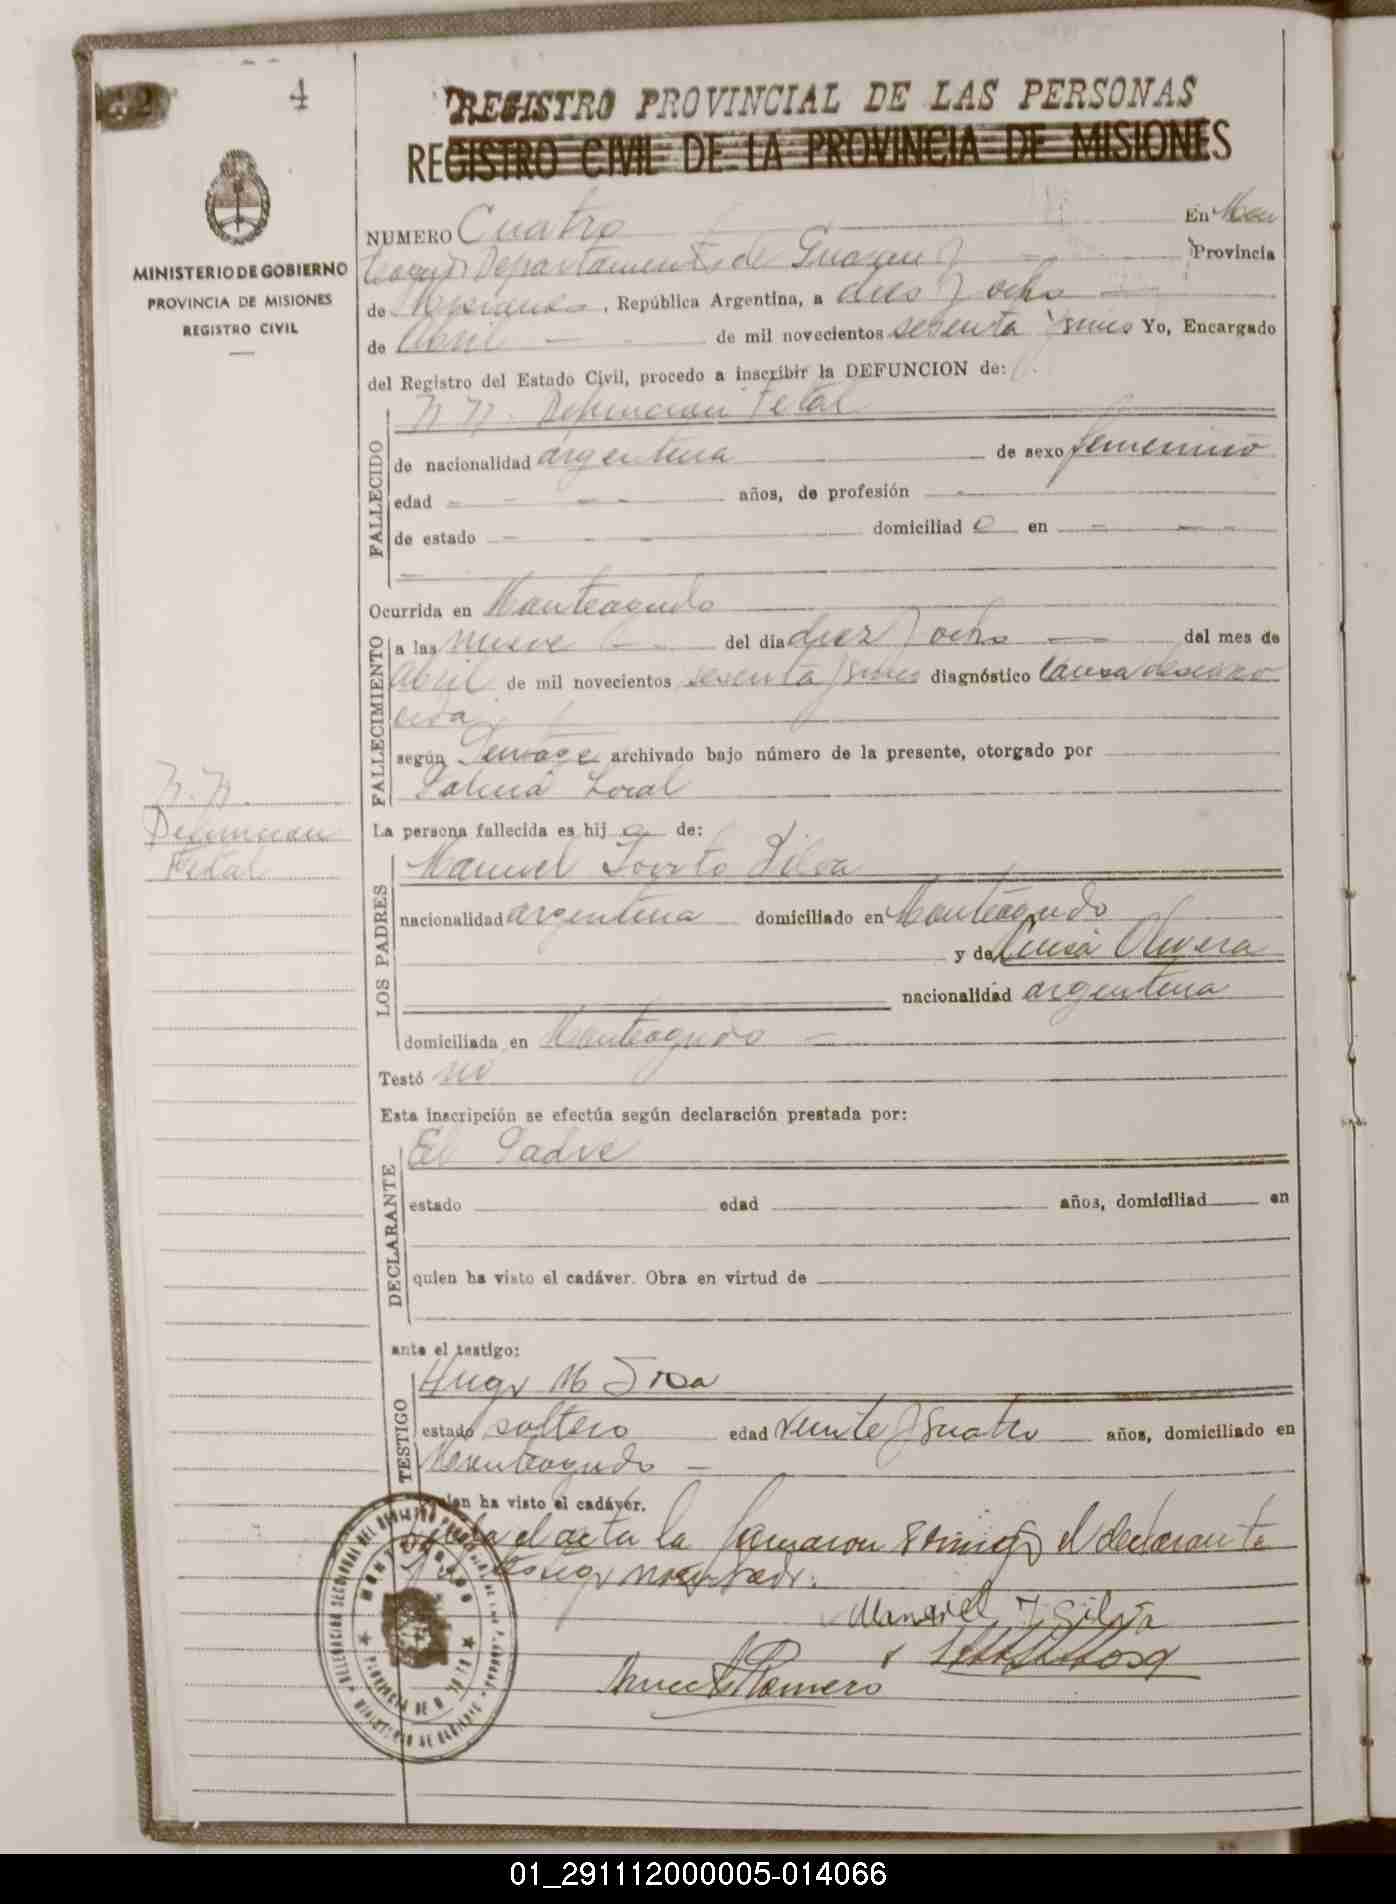 42 4
REGISTRO PROVINCIAL DE LAS PERSONAS
REGISTRO CIVIL DE LA PROVINCIA DE MISIONES
MINISTERIO DE GOBIERNO
PROVINCIA DE MISIONES
REGISTRO CIVIL
NUMERO Cuatro En Mon
teagudo Departamento de Guarani Provincia
de Misiones, República Argentina, a diez y ocho
de Abril de mil novecientos sesenta y Yo, Encargado
del Registro del Estado Civil, procedo a inscribir la DEFUNCION de:
FALLECIDO
N.N. Defuncion Fetal
de nacionalidad argentina de sexo femenino
edad años, de profesión
de estado domiciliad o en
Ocurrida en Monteagudo
FALLECIMIENTO
a las nueve del día diez y ocho del mes de
Abril de mil novecientos sesenta y diagnóstico Causa descono
cida
según archivado bajo número de la presente, otorgado por
Policia Local
N.N.
Defuncion
Fetal
La persona fallecida es hij a de:
LOS PADRES
Manuel Silva
nacionalidad argentina domiciliado en Monteagudo
y de Luisa Olivera
nacionalidad argentina
domiciliada en Monteagudo
Testó no
Esta inscripción se efectúa según declaración prestada por:
DECLARANTE
El Padre
estado edad años, domiciliad en
quien ha visto el cadáver. Obra en virtud de
ante el testigo:
TESTIGO
Hugo M Sosa
estado soltero edad veinte y cuatro años, domiciliado en
Monteagudo
quien ha visto el cadáver.
Leida el acta la firmaron conmigo el declarante
y testigo
Manuel T. Silva
Romero
MONTEAGUDO
01_291112000005-014066